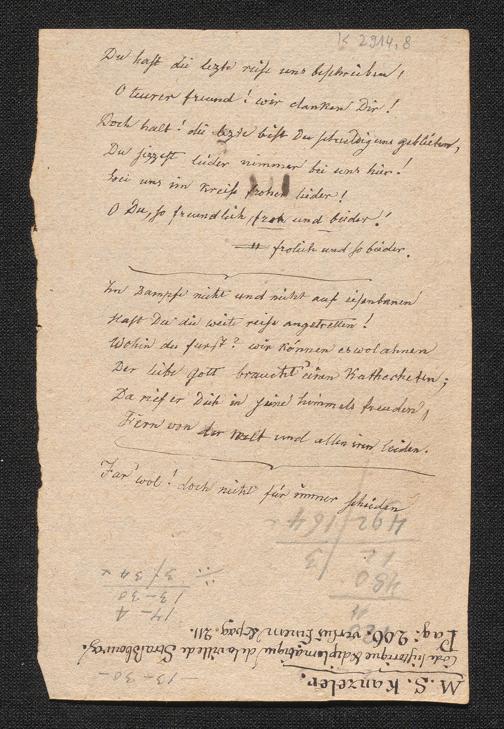 K 2914,8
Du hast die lezte reise uns beschrieben!
O teurer freund! wir danken Dir!
Doch halt! die lezte bist Du schuldig uns geblieben,
Du sizzest leider nimmer bei uns hier!
bei uns im kreise froher lieder!
O Du, so freundlich, froh und bieder!
" frölich und so bieder.
Im Dampfe nicht und nicht auf eisenbanen
Hast Du die weite reise angetretten!
Wohin du furst? wir können es wol ahnen
Der liebe Gott braucht einen Kathecheten;
Da rief er Dich in seine himmels freuden,
Fern von der welt und allen iren leiden.
Far wol! doch nicht für immer schieden
492/164
1
3
480
12
3/34
13-30
14-4
Pag: 206. versus finem & pag. 211.
Code historique & diplomatique de la ville de Strasbourg.
13-30-
M. S. Kanzeler.